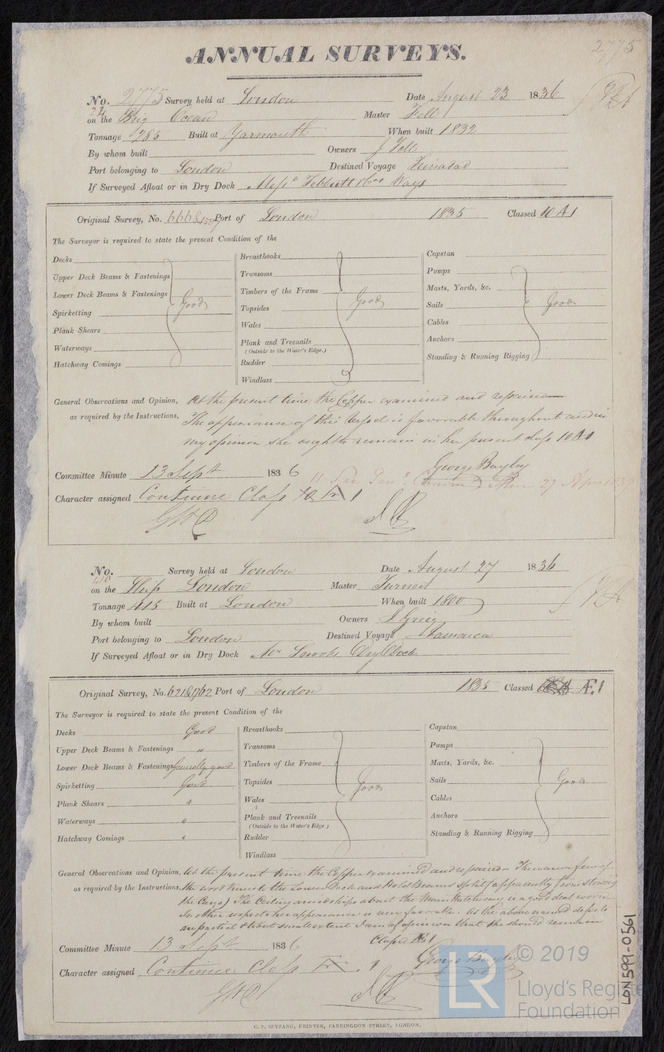 2775
ANNUAL SURVEYS.
No. 2775 Survey held at London Date August 23 1836
on the Brig Ocean Master Fell
Tonnage 285 Built at Yarmouth When built 1832
By whom built Owners J Fell
Port belonging to London Destined Voyage Trinidad
If Surveyed Afloat or in Dry Dock Mess
Original Survey, No. 666 Port of London 1835 Classed 10 A1
The Surveyor is required to state the present Condition of the
Decks
Upper Deck Beams & Fastenings
Lower Deck Beams & Fastenings
Spirketting
Plank Shears
Waterways
Hatchway Comings
Good
Breasthooks
Transoms
Timbers of the Frame
Topsides
Wales
Plank and Treenails
(Outside to the Water's Edge.)
Rudder
Windlass
Good
Capstan
Pumps
Masts, Yards, &c.
Sails
Cables
Anchors
Standing & Running Rigging
Good
General Observations and Opinion, At the present time the Copper examined and repaired
as required by the Instructions. The appearance of this Vessel is favorable throughout and in
my opinion she ought to remain in her present class 10 A1
George Bayley
Committee Minute 13 Sept 1836
Character assigned Continue Class 10 A 1
No. Survey held at London Date August 27 1836
on the Ship London Master Turner
Tonnage 415 Built at London When built 1800
By whom built Owners
Port belonging to London Destined Voyage Jamaica
If Surveyed Afloat or in Dry Dock Mr Dry Dock
Original Survey, No. Port of London 1835 Classed Æ1
The Surveyor is required to state the present Condition of the
Decks Good
Upper Deck Beams & Fastenings "
Lower Deck Beams & Fastenings generally good
Spirketting Good
Plank Shears "
Waterways "
Hatchway Comings "
Breasthooks
Transoms
Timbers of the Frame
Topsides
Wales
Plank and Treenails
(Outside to the Water's Edge.)
Rudder
Windlass
Good
Capstan
Pumps
Masts, Yards, &c.
Sails
Cables
Anchors
Standing & Running Rigging
Good
General Observations and Opinion, At the present time the Copper examined and repaired There are a few of
as required by the Instructions. the Lower Deck and Hold Beams split (apparently from Stowing
the Cargo) The Ceiling amidships about the Main Hatchway is a good deal worn
In other respects her appearance is very favorable. As the above named defects
I am of opinion that she should remain
Classed Æ1
George Bayley
Committee Minute 13 Sept 1836
Character assigned Continue Class Æ 1
C. F. SEYFANG, PRINTER, FARRINGDON STREET, LONDON.
LR
© 2019
Lloyd's Register
Foundation
LON599-0561